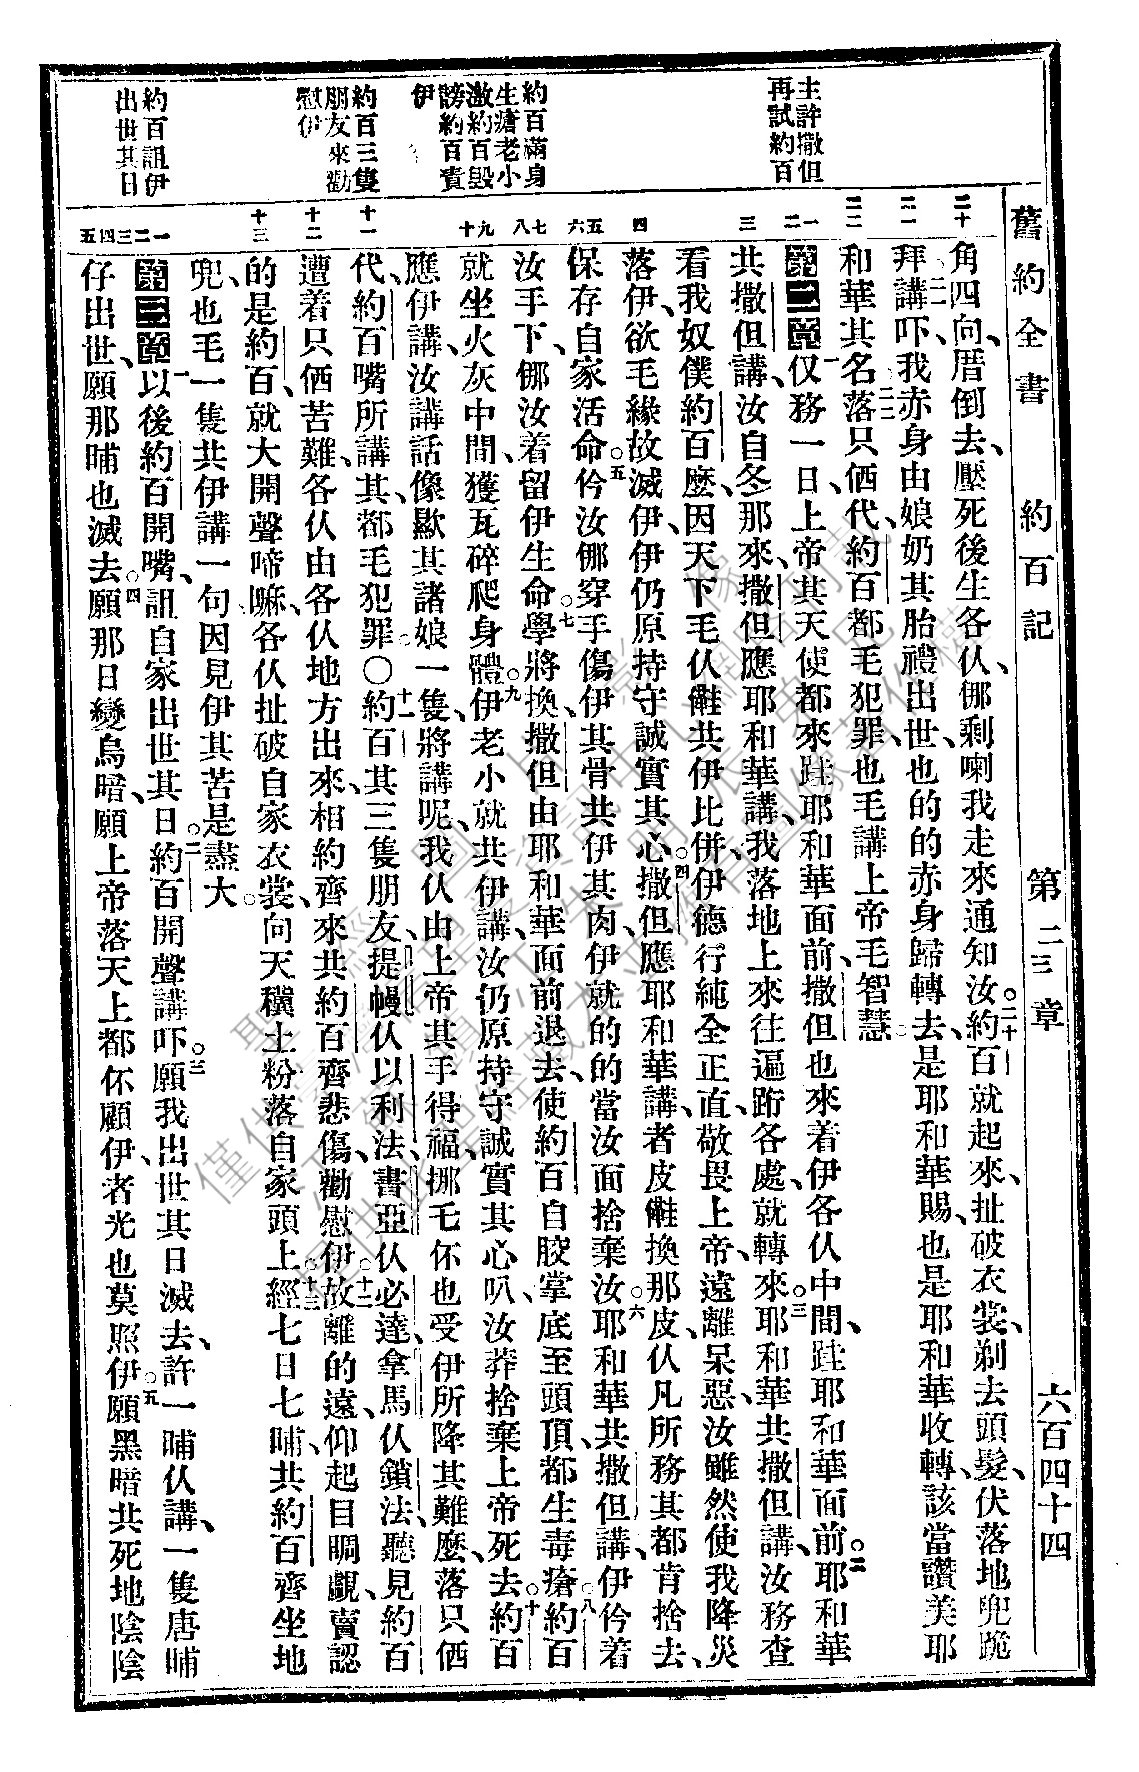 舊約全書 約百記 第二三章 六百四十四
主許撒但
再試約百
約百滿身
生瘡老小
激約百毀
謗約百責
伊
約百三隻
朋友來勸
慰伊
約百詛伊
出世其日
二十
二一
二二
一
二
三
四
五
六
七
八
九
十
十一
十二
十三
一
二
三
四
五
角四向厝倒去、壓死後生各仈、倻剩喇我走來通知汝○二十約百就起來、扯破衣裳、剃去頭髮、伏落地兜跪
拜、二一講吓、我赤身由娘奶其胎禮出世、也的的赤身歸轉去、是耶和華賜、也是耶和華收轉、該當讚美耶
和華其名、二二落只個代、約百都毛犯罪、也毛講上帝毛智慧○
第二章一仅務一日、上帝其天使都來跬耶和華面前、撒但也來着伊各仈中間、跬耶和華面前○二耶和華
共撒但講、汝自冬那來、撒但應耶和華講、我落地上來往遍跡各處、就轉來○三耶和華共撒但講、汝務查
看我奴僕約百麼、因天下毛仈𣍐共伊比併、伊德行純全正直、敬畏上帝、遠離呆惡、汝雖然使我降災
落伊、欲毛緣故滅伊、伊仍原持守誠實其心○四撒但應耶和華講、者皮𣍐換那皮、仈凡所務其都肯捨去、
保存自家活命○五仱汝倻穿手傷伊其骨共伊其肉、伊就的的當汝面捨棄汝○六耶和華共撒但講、伊仱着
汝手下、倻汝着留伊生命○七學將換、撒但由耶和華面前退去、使約百自骹掌底至頭頂、都生毒瘡○八約百
就坐火灰中間、獲瓦碎爬身體○九伊老小就共伊講、汝仍原持守誠實其心叭、汝莽捨棄上帝死去○十約百
應伊講、汝講話像歟其諸娘一隻、將講呢、我仈由上帝其手得福、挪毛伓也受伊所降其難麼、落只個
代、約百嘴所講其、都毛犯罪○十一約百其三隻朋友、提幔仈以利法、書亞仈必達、拿馬仈鎖法、聽見約百
遭着只個苦難、各仈由各仈地方出來、相約齊來共約百齊悲傷、勸慰伊○十二故離的遠、仰起目睭覷、賣認
的是約百、就大開聲啼嘛、各仈扯破自家衣裳、向天穰土粉落自家頭上○十三經七日七晡、共約百齊坐地
兜、也毛一隻共伊講一句、因見伊其苦是盡大
第三章一以後約百開嘴、詛自家出世其日○二約百開聲講○三吓願我出世其日滅去、許一晡仈講、一隻唐晡
仔出世、願那晡也滅去○四願那日變烏暗、願上帝落天上都伓顧伊、者光也莫照伊○五願黑暗共死地陰陰